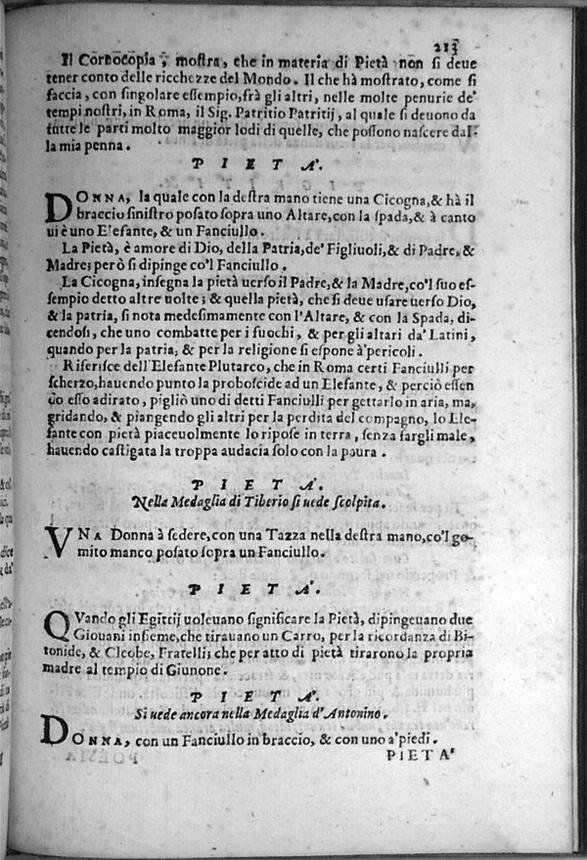 213
Il Cornocopia, mostra, che in materia di Pietà non si deue
tener conto delle ricchezze del Mondo. Il che hà mostrato, come si
faccia, con singolare essempio, frà gli altri, nelle molte penurie de'
tempi nostri, in Roma, il Sig. Patritio Patritij, al quale si deuono da
tutte le parti molto maggior lodi di quelle, che possono nascere dal-
la mia penna.
PIETA'.
DONNA, la quale con la destra mano tiene una Cicogna, & hà il
braccio sinistro posato sopra uno Altare, con la spada, & à canto
ui è uno Elefante, & un Fanciullo.
La Pietà, è amore di Dio, della Patria, de' Figliuoli, & di Padre, &
Madre; però si dipinge co'l Fanciullo.
La Cicogna, insegna la pietà uerso il Padre, & la Madre, co'l suo es-
sempio detto altre uolte; & quella pietà, che si deue usare uerso Dio,
& la patria, si nota medesimamente con l'Altare, & con la Spada, di-
cendosi, che uno combatte per i fuochi, & per gli altari da' Latini,
quando per la patria, & per la religione si espone à' pericoli.
Riferisce dell'Elefante Plutarco, che in Roma certi Fanciulli per
scherzo, hauendo punto la proboscide ad un Elefante, & perciò essen
do esso adirato, pigliò uno di detti Fanciulli per gettarlo in aria, ma,
gridando, & piangendo gli altri per la perdita del compagno, lo Ele-
fante con pietà piaceuolmente lo ripose in terra, senza fargli male,
hauendo castigata la troppa audacia solo con la paura.
PIETA'.
Nella Medaglia di Tiberio si uede scolpita.
VNA Donna à sedere, con una Tazza nella destra mano, co'l go-
mito manco posato sopra un Fanciullo.
PIETA'.
QVando gli Egittij uoleuano significare la Pietà, dipingeuano due
Giouani insieme, che tirauano un Carro, per la ricordanza di Bi-
tonide, & Cleobe, Fratelli; che per atto di pietà tirarono la propria
madre al tempio di Giunone.
PIETA'.
Si uede ancora nella Medaglia d'Antonino.
DONNA, con un Fanciullo in braccio, & con uno a' piedi.
PIETA'